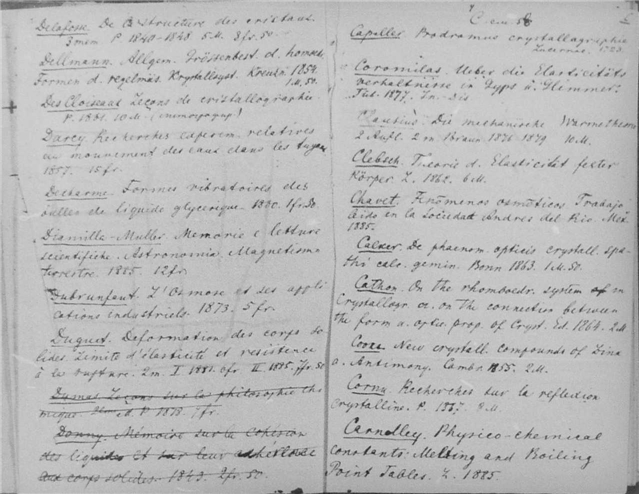 Delafosse. De la structure des cristaux.
3 mem P 1840-1848 5 M. 8 fr. 50
Dellmann. Allgem. Grössenbest. d. homoedr.
Formen d. regelmäs. Krystallsyst. Kreuzn 1852.
1 M. 50
Des Cloiseaux Leçons de cristallographie
P. 1861. 10 M.
Darcy. Recherches experim. relatives
au mouvement des eaux dans les tuyaux
1857. 15 fr.
Decharme. Formes vibratoires des
bulles de liquide glycerique. 1880. 1 fr. 50
Diamilla-Muller. Memorie e letture
scientifiche. Astronomia. Magnetismo
terrestre. 1885. 12 fr.
Dubrunfaut. L'Osmose et ses appli
cations industriels. 1873. 5 fr.
Duguet. Deformation des corps so
lides. Limite d'élasticité et resistence
à la rupture. 2 m. I 1882. 6 fr II 1885. 7 fr. 50
Dumas. Leçons sur la philosophie chi
mique. P. 1878. 7 fr.
Donny. Mémoire sur la cohésion
des liquides et sur leur adhérence
aux corps solides. 1843. 2 fr. 50.
Capeller Prodromus crystallographiae
Lucernae. 1723.
Coromilas. Ueber die Elasticitäts
verhältnisse in Gyps u. Glimmer.
Tüb. 1877. In.-Dis
Clausius. Die mechanische Warmetheorie
2 Aufl. 2 m Braun. 1876-1879 10 M.
Clebsch. Theorie d. Elasticität fester
Körper. L. 1862. 6 M.
Chavet. Fenómenos osmóticos Trabajo
leido en la sociedad Andres del Rio Mex
1885.
Calker. De phaenom. opticis crystall. spa
thi calc. gemin. Bonn 1863. 1 M. 50.
Cathon. On the rhomboedr. system of in
Crystallogr. or. on the connection between
the form a. optic. prop. of Cryst. Ed. 1864. 2 M.
Cooke. New crystall. compounds of Zinc
a. Antimony. Cambr. 1855. 2 M.
Cornu. Recherches sur la reflexion
crystalline. P. 1867. 8 M.
Carnelley. Physico-chemical
constants: Melting and Boiling
Point Tables. L. 1885.